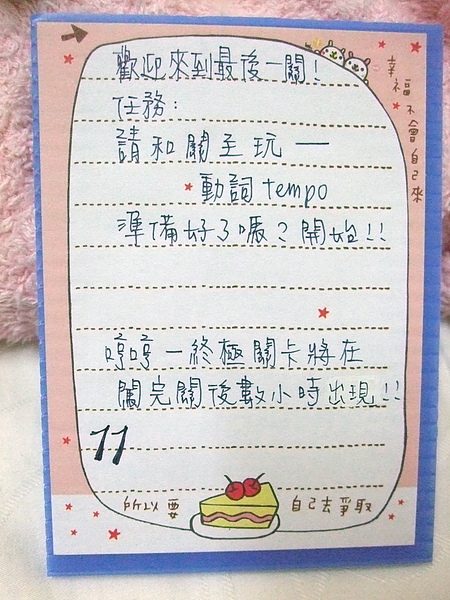 歡迎來到最後一關!
任務:
請和關主玩一
動詞tempo
準備好了嗎?開始!!
哼哼一終極關卡將在
闖完關後數小時出現!!
11
幸福不會自己來
所以要
自己去爭取